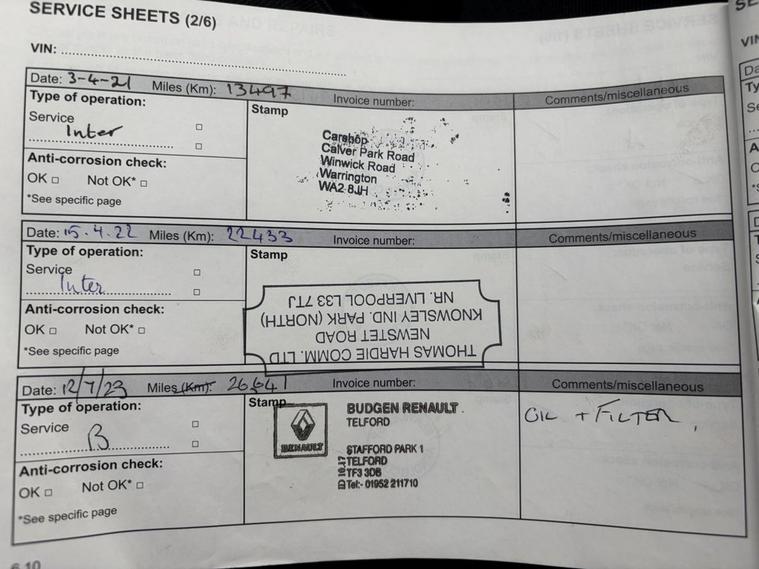 SERVICE SHEETS (2/6)
VIN:
Date: 3-4-21 Miles (Km): 13497 Invoice number: Comments/miscellaneous
Type of operation:
Stamp
Service
Inter
Anti-corrosion check:
OK Not OK*
*See specific page
Carshop
Calver Park Road
Winwick Road
Warrington
WA2 8JH
Date: 15.4.22 Miles (Km): 22433 Invoice number: Comments/miscellaneous
Type of operation:
Stamp
Service
Inter
Anti-corrosion check:
OK Not OK*
*See specific page
THOMAS HARDIE COMM. LTD
NEWSTET ROAD
KNOWSLEY IND. PARK (NORTH)
NR. LIVERPOOL L33 7TJ
Date: 12/7/23 Miles (Km): 26641 Invoice number: Comments/miscellaneous
Type of operation:
Stamp
Service
B
Anti-corrosion check:
OK Not OK*
*See specific page
RENAULT
BUDGEN RENAULT
TELFORD
STAFFORD PARK 1
TELFORD
TF3 3DB
Tel:- 01952 211710
OIL + FILTER,
6.10